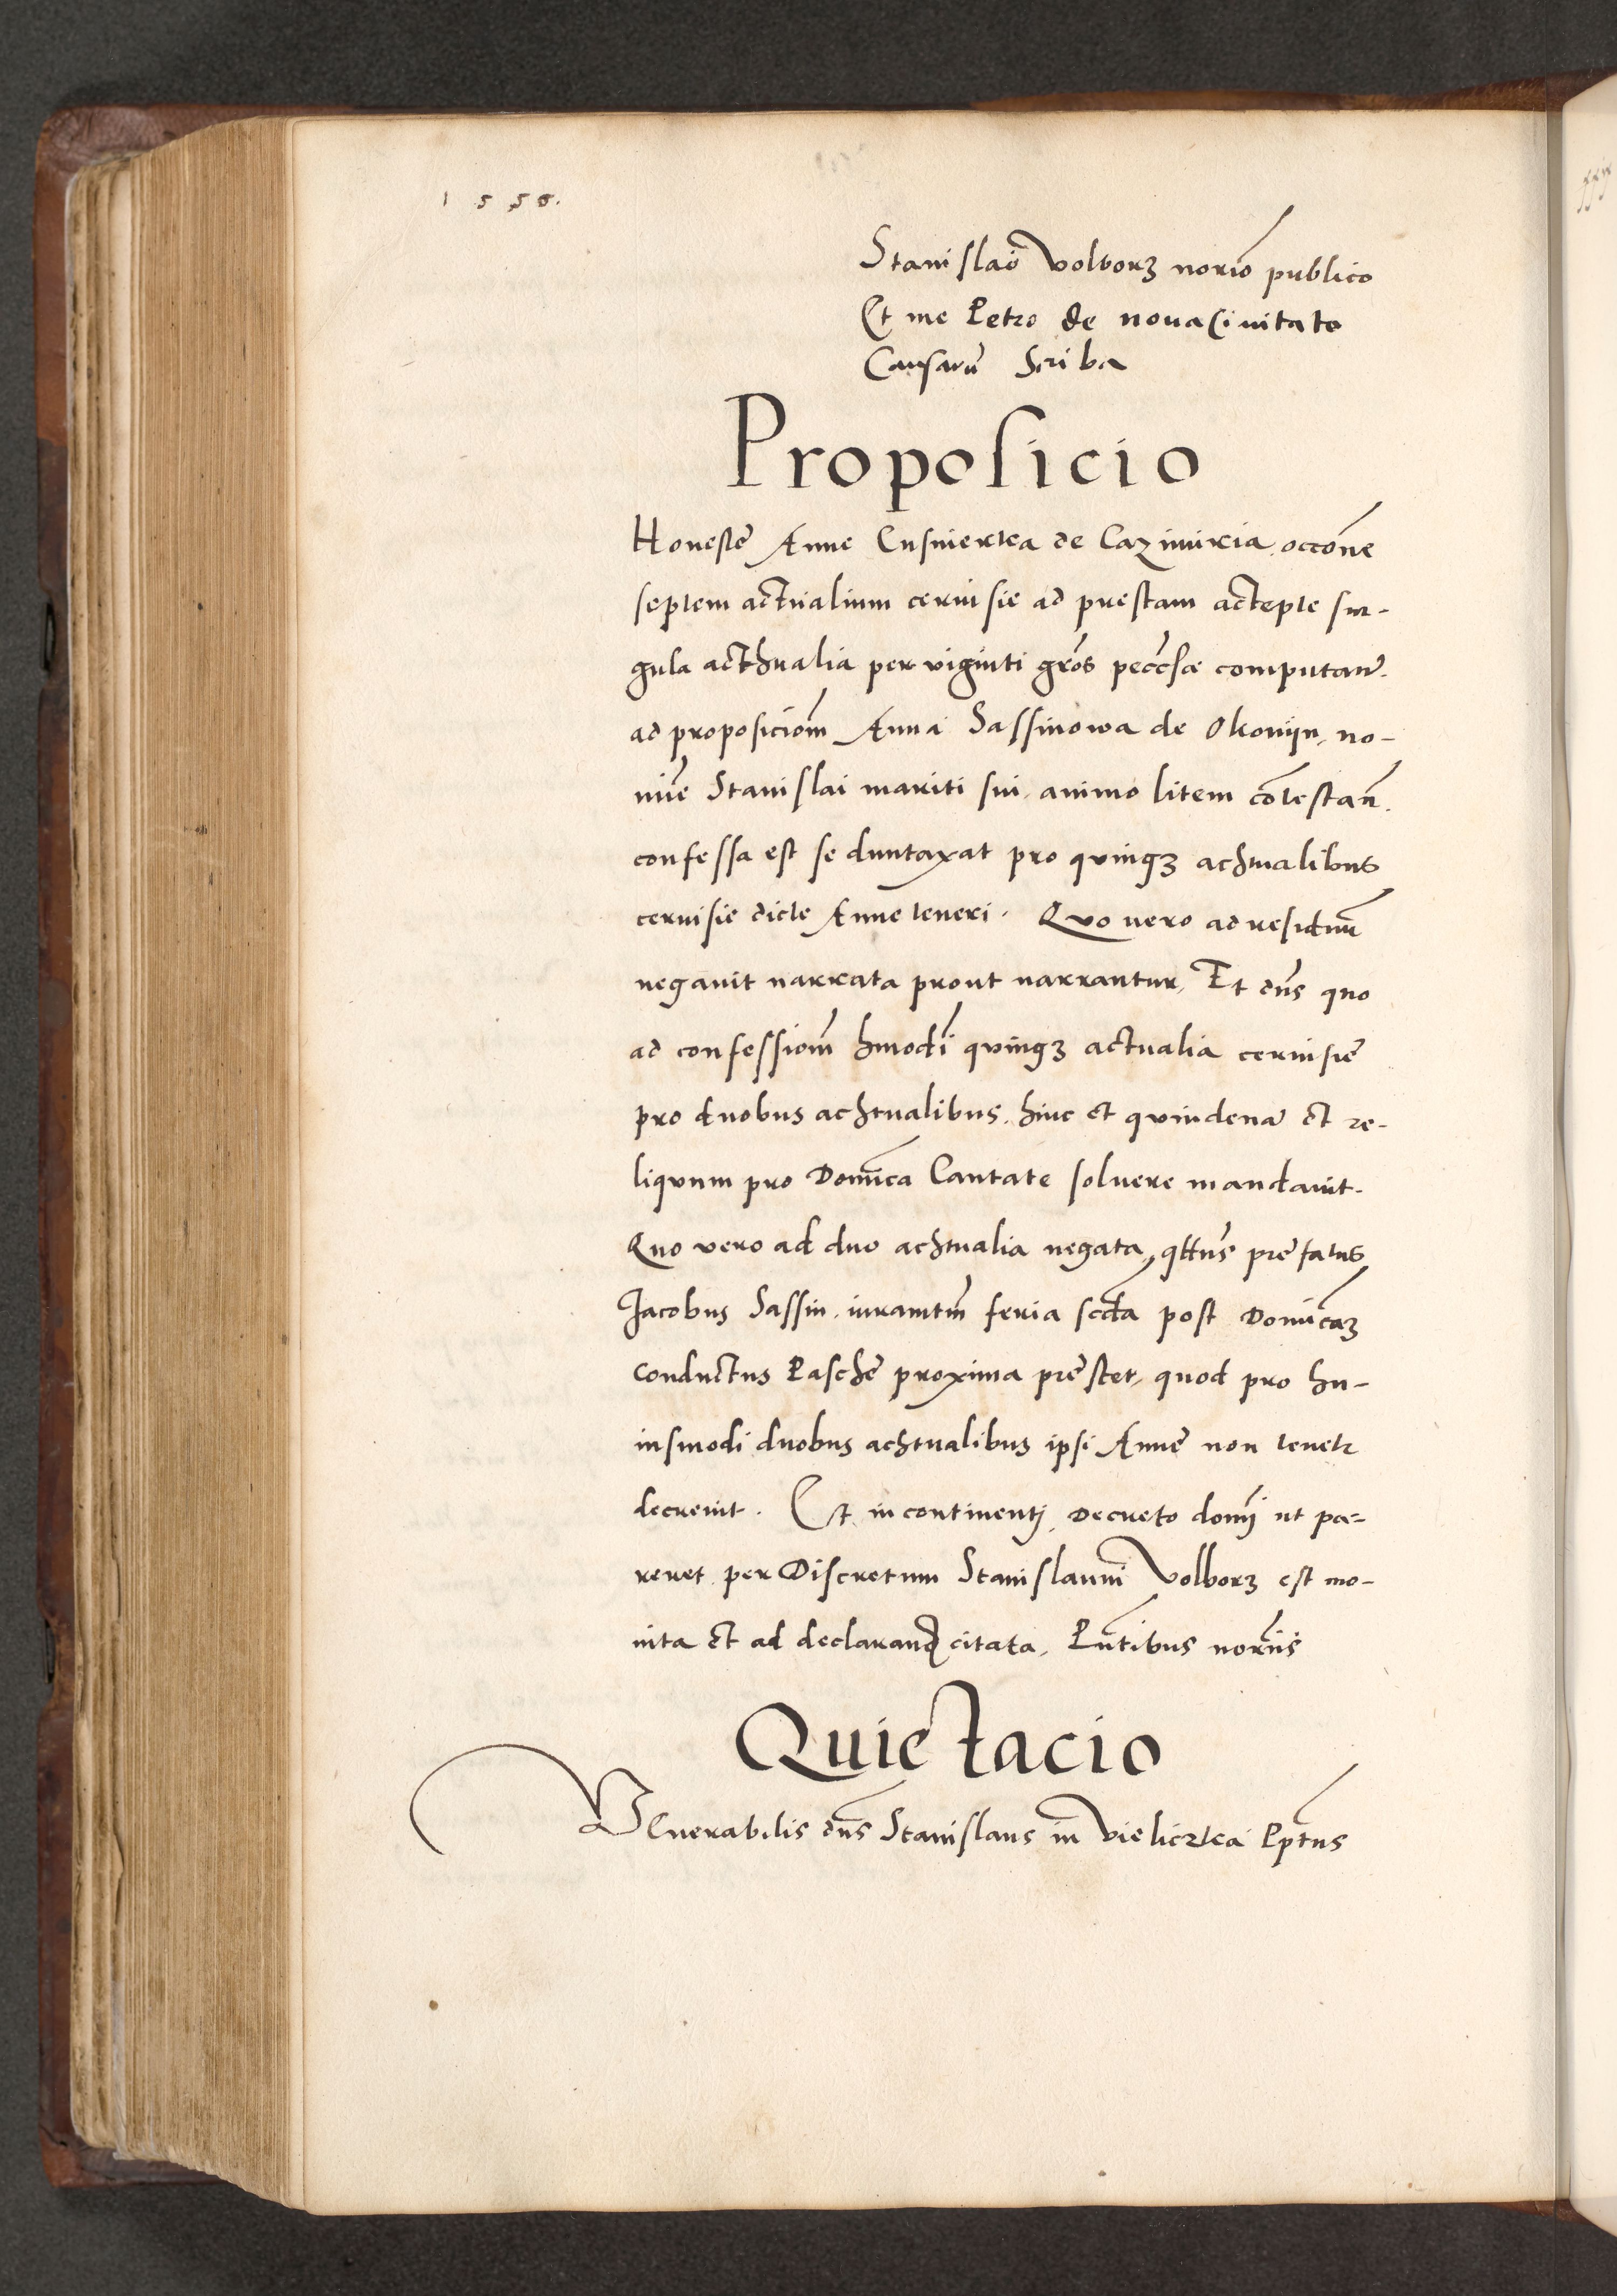 1556.
Stanislao Volborz norio publico
Et me Petro de noua Ciuitate
Causarū Scriba
Proposicio
Honestę Anne Cusnierka de Cazimiria, occōne
septem actualium ceruisie ad prestam accepte sin-
gula acthualia per viginti gros computan̄.
ad proposiciom̄ Anna Sassinowa de Okoniin, no-
mīe Stanislai mariti sui, animo litem cōtestan̄.
confessa est se duntaxat pro quinqȝ achtualibus
ceruisie dicte Anne teneri. Quo uero ad residuū
negauit narrata prout narrantur, Et dn̄s quo
ad confessiom̄ hmodī quinqȝ actualia ceruisie
pro duobus achtualibus, hinc et quindena et re-
liquum pro Domīca Cantate soluere mandauit.
Quo vero ad duo achtualia negata, prefatus
Jacobus Sassin, iuramtm̄ feria scda post Domīcaȝ
Conductus Paschę proxima pręstet, quod pro hu-
iusmodi duobus achtualibus ipsi Annę non tenetr
decreuit. Et in continentj, Decreto domī ut pa-
reret per Discretum Stanislaum Volborz est mo-
nita et ad declarand citata, Pn̄tibus norīis
Quietacio
Venerabilis dn̄s Stanislaus in Vieliczka